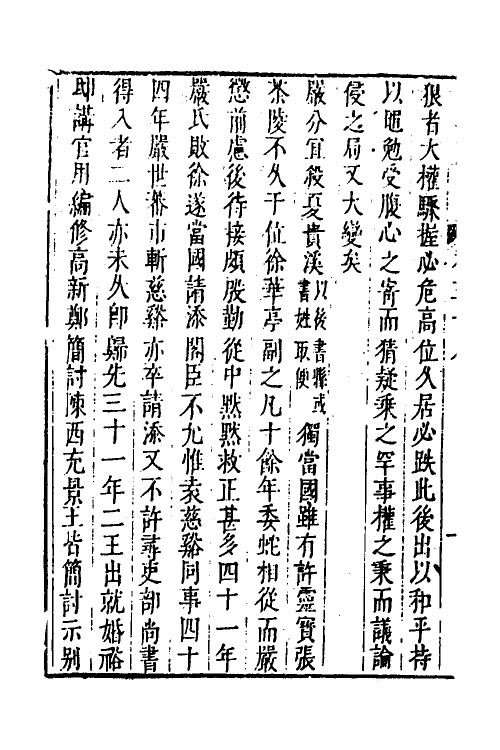 狠者大權驟握必危高位久居必跌此後出以和平持
以黽勉受腹心之寄而猜疑乘之罕事權之秉而議論
侵之局又大變矣
嚴分宜殺夏貴溪以後書縣或書姓取便獨當國雖有許靈寶張
茶陵不久于位徐華亭副之凡十餘年委蛇相從而嚴
懲前慮後待接頗殷勤從中默默救正甚多四十一年
嚴氏敗徐遂當國請添閣臣不允惟袁慈谿同事四十
四年嚴世蕃市斬慈谿亦卒請添又不許尋吏部尚書
得入者二人亦未久卽歸先三十一年二王出就婚裕
邸講官用編修高新鄭簡討陳西充景王皆簡討示别